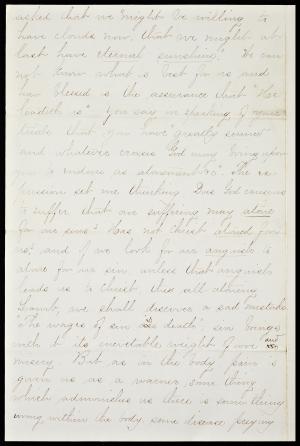 asked that we "might be willing to
have clouds now, that we might at
last have eternal sunshine". We can
not know what is best for us and
how blessed is the assurance that "He
leadeth us". You say in speaking of your
trials that you have greatly sinned
and whatever crosses God may bring upon
you to endure as atonement &c. The ex
pression set me thinking. Does God cause us
to suffer that our suffering may atone
for our sins? Has not Christ atoned for
us? and if we look for our anguish to
atone for our sin, unless that anguish
leads us to Christ, the all atoning
Lamb, we shall discover a sad mistake.
"The wages of sin is death"; sin brings
with it its inevitable weight of woe and
misery. But as in the body pain is
given us as a warner, some thing
which admonishes us there is something
wrong within the body, some disease preying